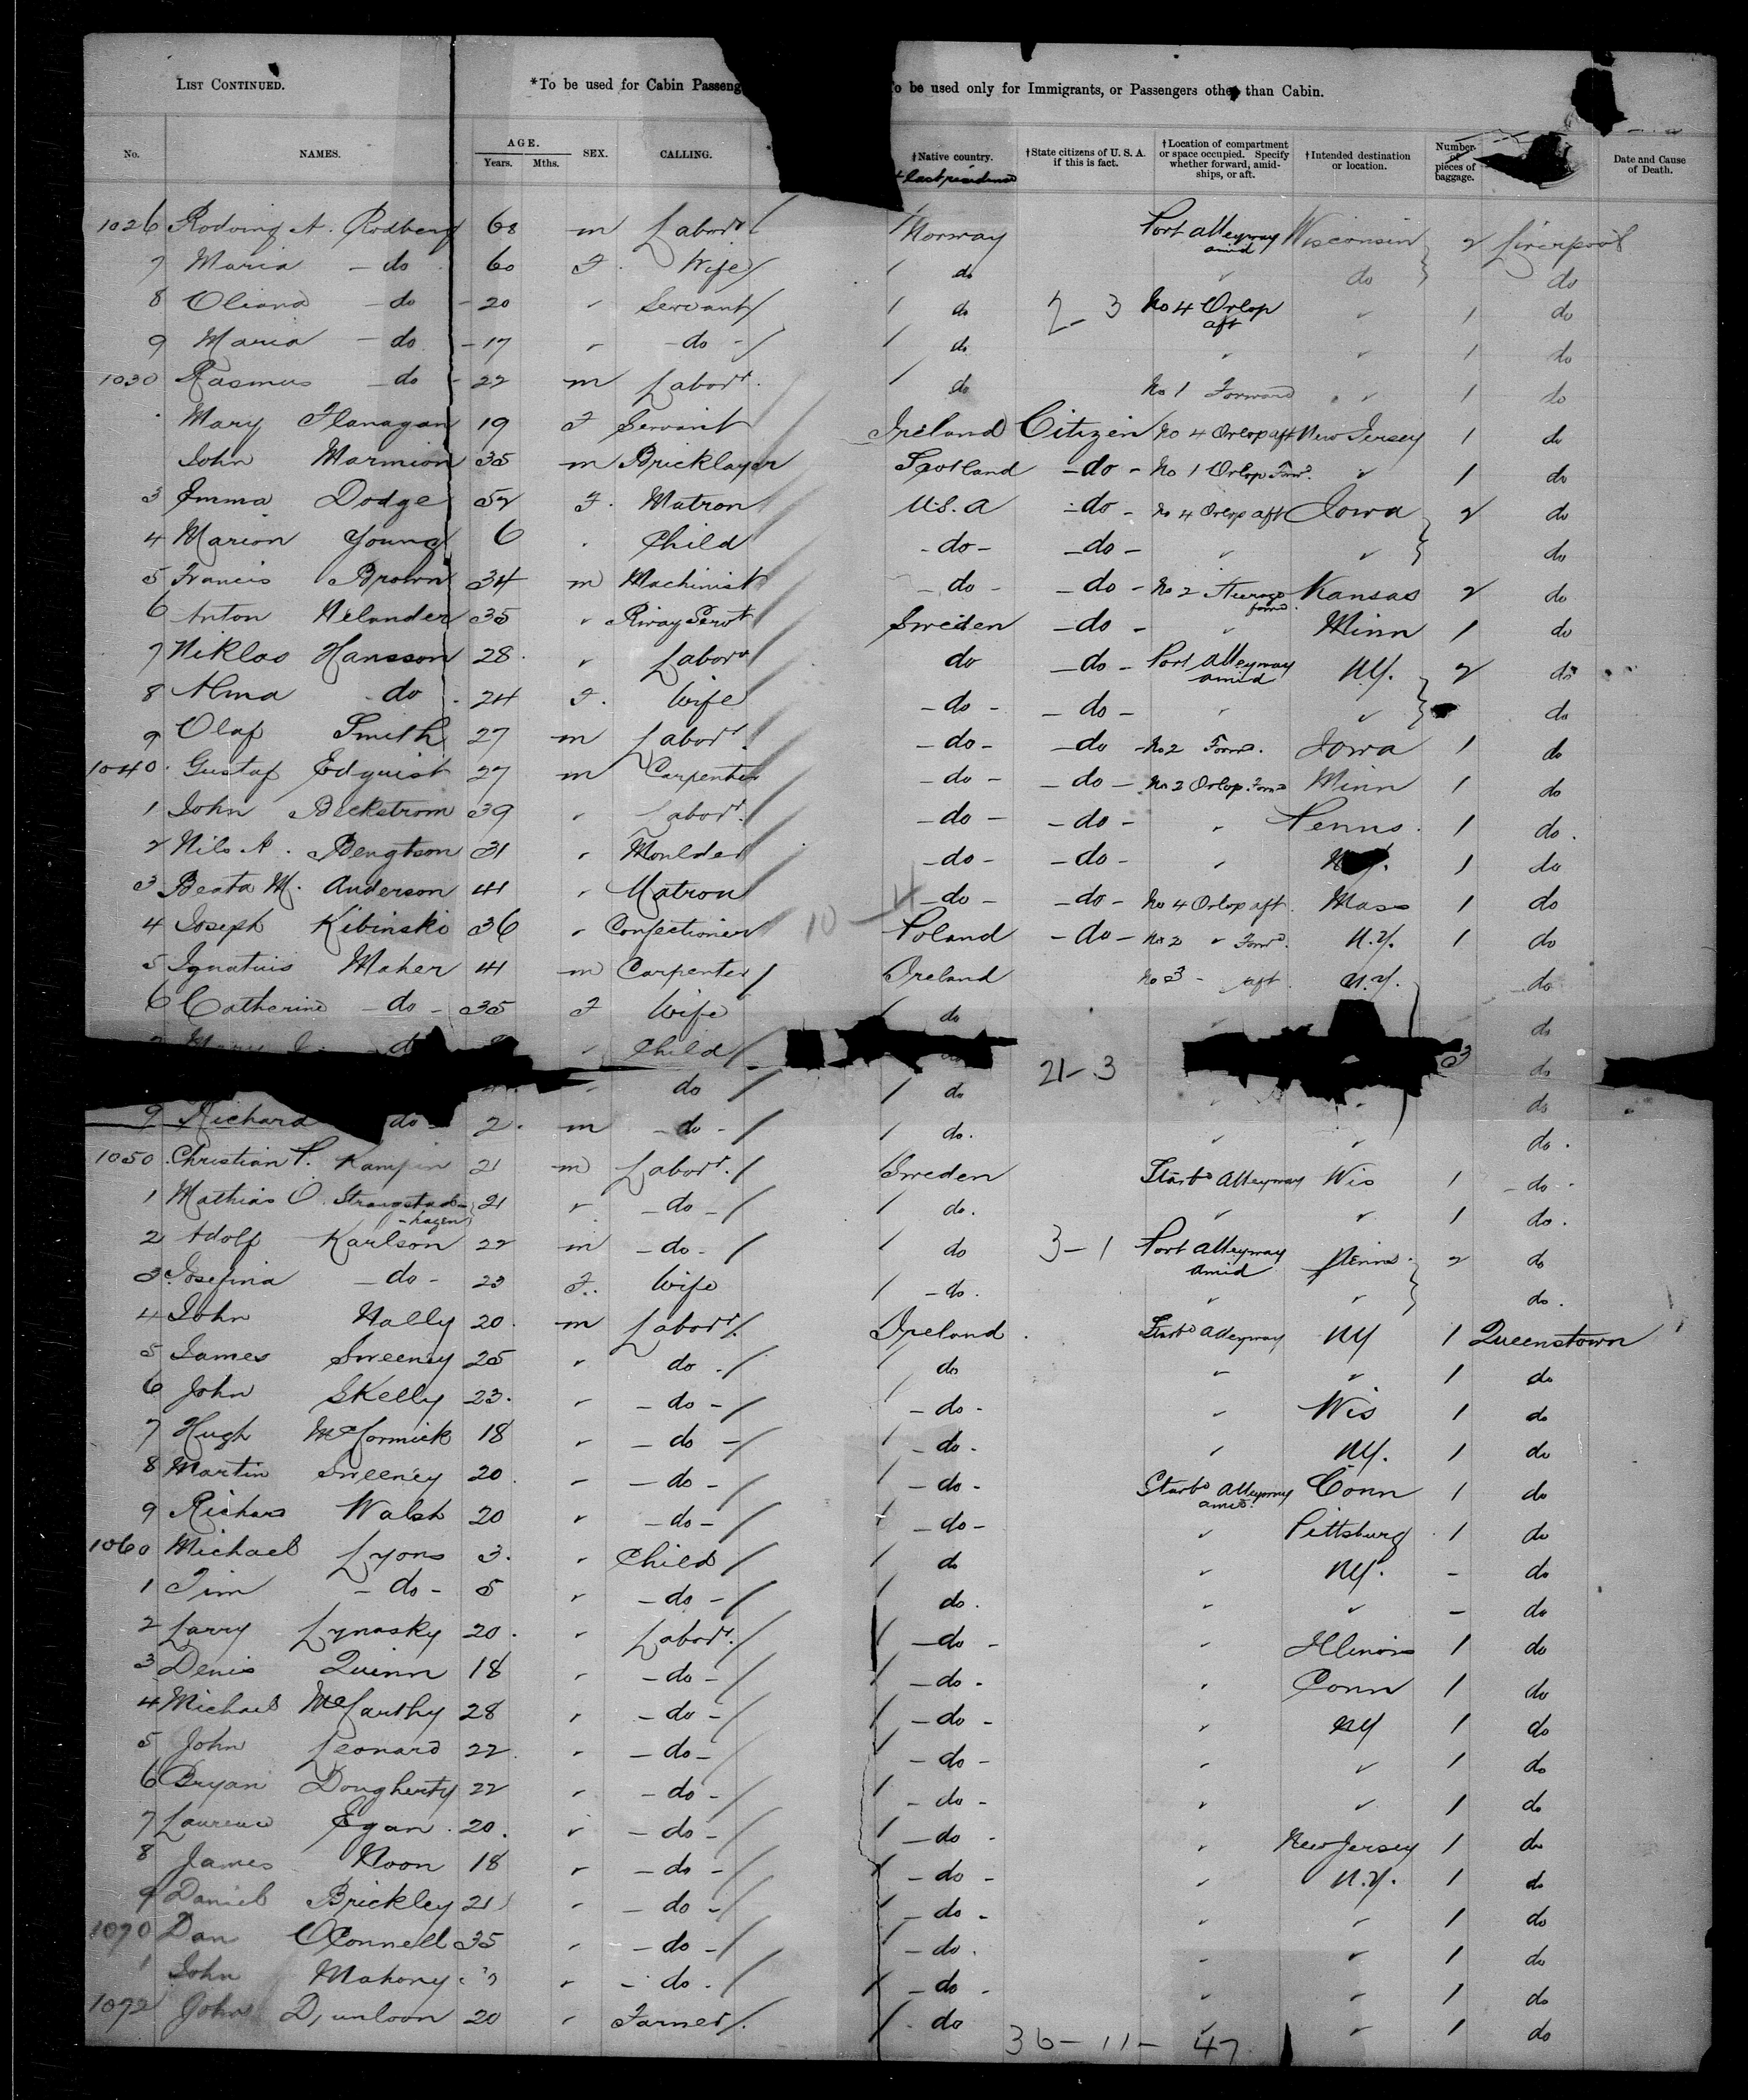 LIST CONTINUED. *To be used for Cabin Passeng o be used only for Immigrants, or Passengers other than Cabin.
No. NAMES. AGE. Years. Mths. SEX. CALLING. †Native country. †State citizens of U. S. A. if this is fact. †Location of compartment or space occupied. Specify whether forward, amidships, or aft. †Intended destination or location. Number of pieces of baggage. Date and Cause of Death.
1026 A. Rodberg 68 m Labor Norway Port Alleyway amid Wisconsin 2 Liverpool
7 Maria - do 60 F. Wife do " do do
8 Oliana - do - 20 " Servant do 2-3 No 4 Orlop aft " 1 do
9 Maria - do - 17 " - do - do " " 1 do
1030 Rasmus - do - 22 m Labor. do No 1 Forward " 1 do
Mary Flanagan 19 F Servant Ireland Citizen No 4 Orlop aft New Jersey 1 do
John Marmion 35 m Bricklayer Scotland - do - No 1 Orlop Forwd. " 1 do
3 Emma Dodge 52 F. Matron U.S.A - do - No 4 Orlop aft Iowa 2 do
4 Marion Young 6 " Child - do - - do - " " do
5 Francis Brown 34 m Machinist - do - - do - No 2 Steerage forwd. Kansas 2 do
6 Anton Nelander 35 " Sweden - do - " Minn 1 do
7 Niklas Hansson 28 " Labor do - do - Port Alleyway amid NY. 2 do
8 Alma do 24 F. Wife - do - - do - " " do
9 Olaf Smith 27 m Labor. - do - - do - No 2 Forwd. Iowa 1 do
1040 Gustaf Edquist 27 m Carpenter - do - - do - No 2 Orlop Forwd Minn 1 do
1 John Beckstrom 39 " Labor. - do - - do - " Penns. 1 do.
2 Nils A. Bengtson 31 " Moulder - do - - do - " 1 do
3 Beata M. Anderson 41 " Matron 10 - 4 - do - - do - No 4 Orlop aft. Mass 1 do
4 Joseph Kibinski 36 " Confectioner Poland - do - No 2 " Forwd. N.Y. 1 do
5 Ignatius Maher 41 m Carpenter Ireland No 3 - aft N.Y. do
6 Catherine - do - 35 F Wife do do
" Child 21-3 3 do
do do " " do
9 Richard do - 2. m - do - do. " " do.
1050 Christian P. 21 m Labor. Sweden Starbd Alleyway Wis 1 - do -
1 Mathias O. 21 " - do - do. " " 1 do.
2 Adolf Karlson 22 m - do - do 3-1 Port Alleyway amid 2 do
3 Josefina - do - 23 F. Wife - do. " " do.
4 John Nally 20. m Labor. Ireland. Starbd Alleyway NY 1 Queenstown
5 James Sweeney 25 " do - do " " 1 do
6 John Skelly 23. " - do - - do - " Wis 1 do
7 Hugh McCormick 18 " - do - - do - " NY. 1 do
8 Martin Sweeney 20. " - do - - do - Starbd Alleyway amid. Conn 1 do
9 Richard Walsh 20 " - do - - do - " Pittsburg 1 do
1060 Michael Lyons 3. " Child do " NY. - do
1 Tim - do - 5 " - do - do. " " - do
2 Larry Lynasky 20. " Labor. - do - " Illinois 1 do
3 Denis Quinn 18 " - do - - do - " Conn 1 do
4 Michael McCarthy 28 " - do - - do - " NY 1 do
5 John Leonard 22. " - do - - do - " " 1 do
6 Bryan Dougherty 22 " - do - - do - " " 1 do
7 Laurence Egan 20. " - do - - do - " New Jersey 1 do
8 James Noon 18 " - do - - do - " N.Y. 1 do
9 Daniel Brickley 21 " - do - - do - " " 1 do
1070 Dan O'Connell 35 " - do - - do. " " 1 do
1 John Mahony " - do - - do - " " 1 do
1072 John 20 " Farmer. do " " 1 do
36 - 11 - 47